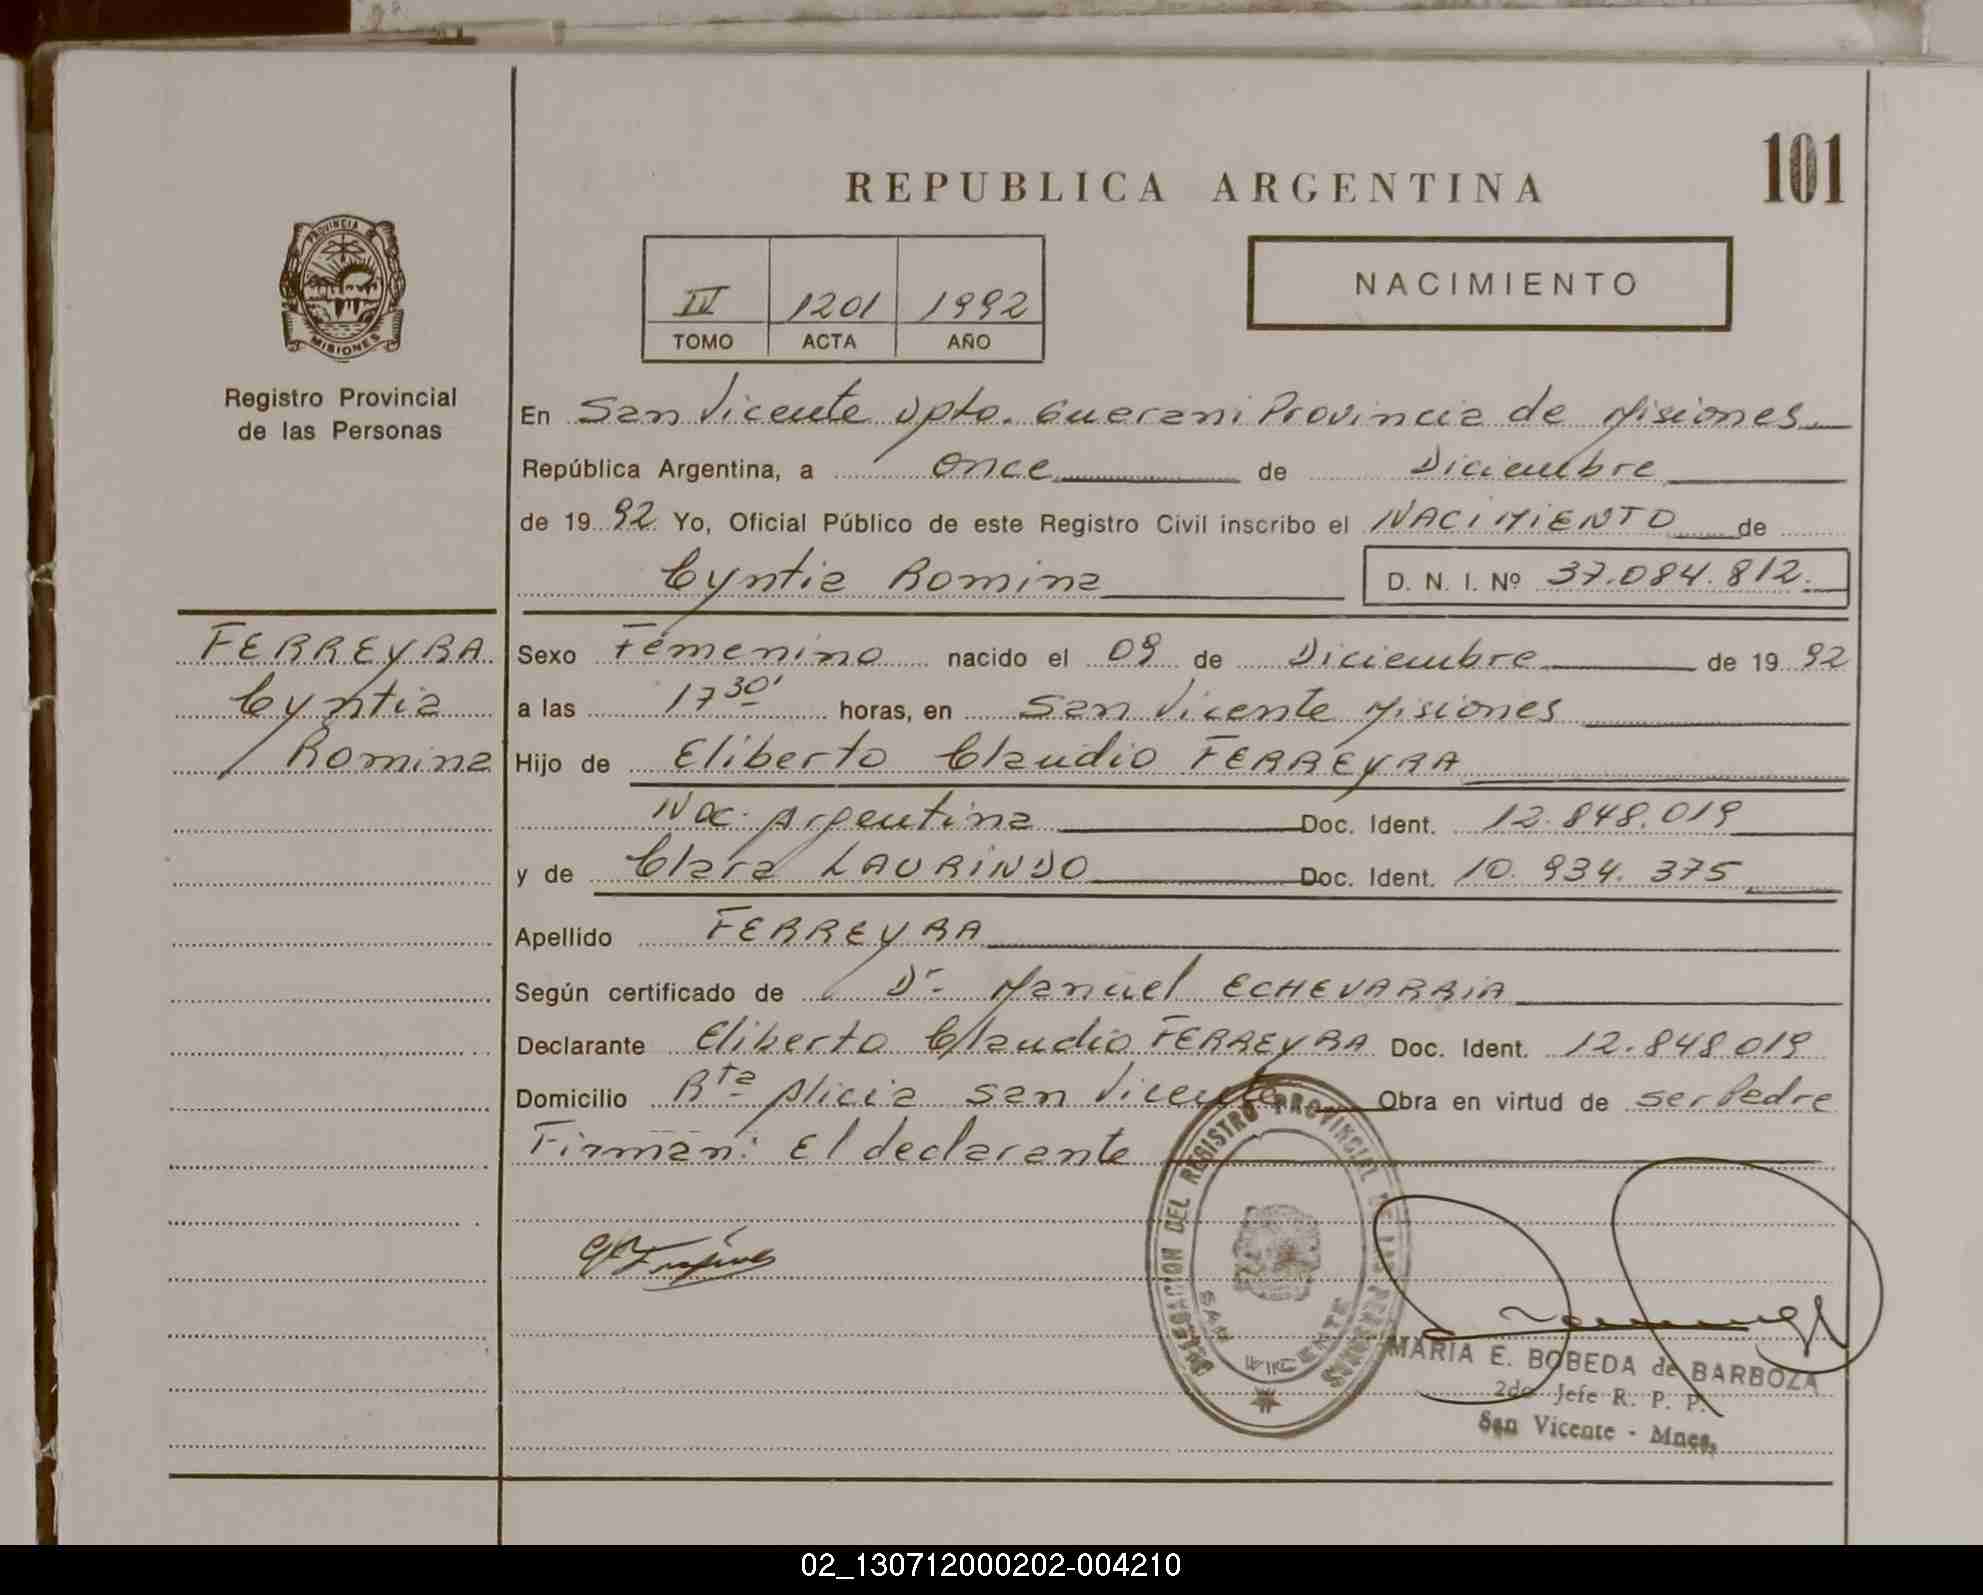 101
REPUBLICA ARGENTINA
NACIMIENTO
IV 1201 1992
TOMO ACTA AÑO
PROVINCIA DE
MISIONES
Registro Provincial
de las Personas
En San Vicente Dpto. Guarani Provincia de Misiones
República Argentina, a once de Diciembre
de 19 92 Yo, Oficial Público de este Registro Civil inscribo el NACIMIENTO de
Cyntia Romina D. N. I. Nº 37.084.812.
FERREYRA
Cyntia
Romina
Sexo Femenino nacido el 09 de Diciembre de 19 92
a las 17 30' horas, en San Vicente Misiones
Hijo de Eliberto Claudio FERREYRA
Nac. Argentina Doc. Ident. 12.848.019
y de Clara LAURINDO Doc. Ident. 10.934.375
Apellido FERREYRA
Según certificado de Dr. Manuel ECHEVARRIA
Declarante Eliberto Claudio FERREYRA Doc. Ident. 12.848.019
Domicilio Rta Alicia San Vicente Obra en virtud de ser Padre
Firman: El declarante
DELEGACION DEL REGISTRO PROVINCIAL DE LAS PERSONAS
SAN VICENTE
MARIA E. BOBEDA de BARBOZA
2do. Jefe R. P. P.
San Vicente - Mnes.
02_130712000202-004210